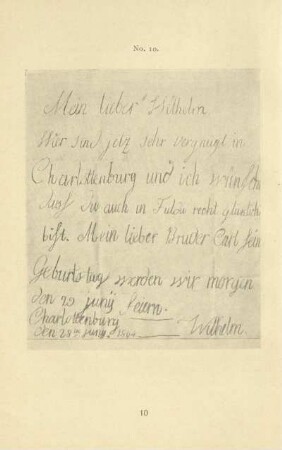 No. 10.
Mein lieber Wilhelm
Wir sind jetz sehr vergnugt in
Charlottenburg und ich wünsche
daß Du auch in Fulda recht glücklich
bist. Mein lieber Bruder Carl sein
Geburtstag werden wir morgen
den 29 junÿ feiern.
Charlottenburg
den 28ten junÿ
Wilhelm.
10